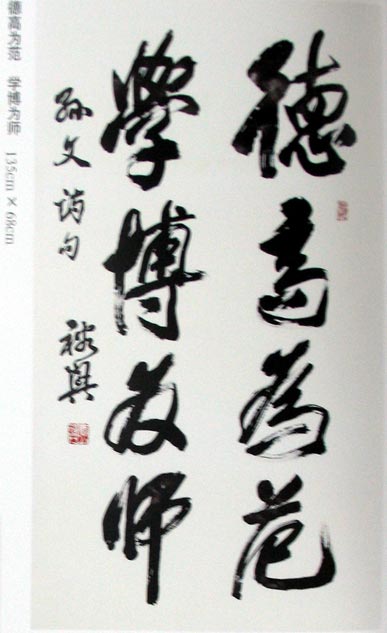 德高為范
學博為师
孙文 句
德高为范 学博为师 135cm × 68cm